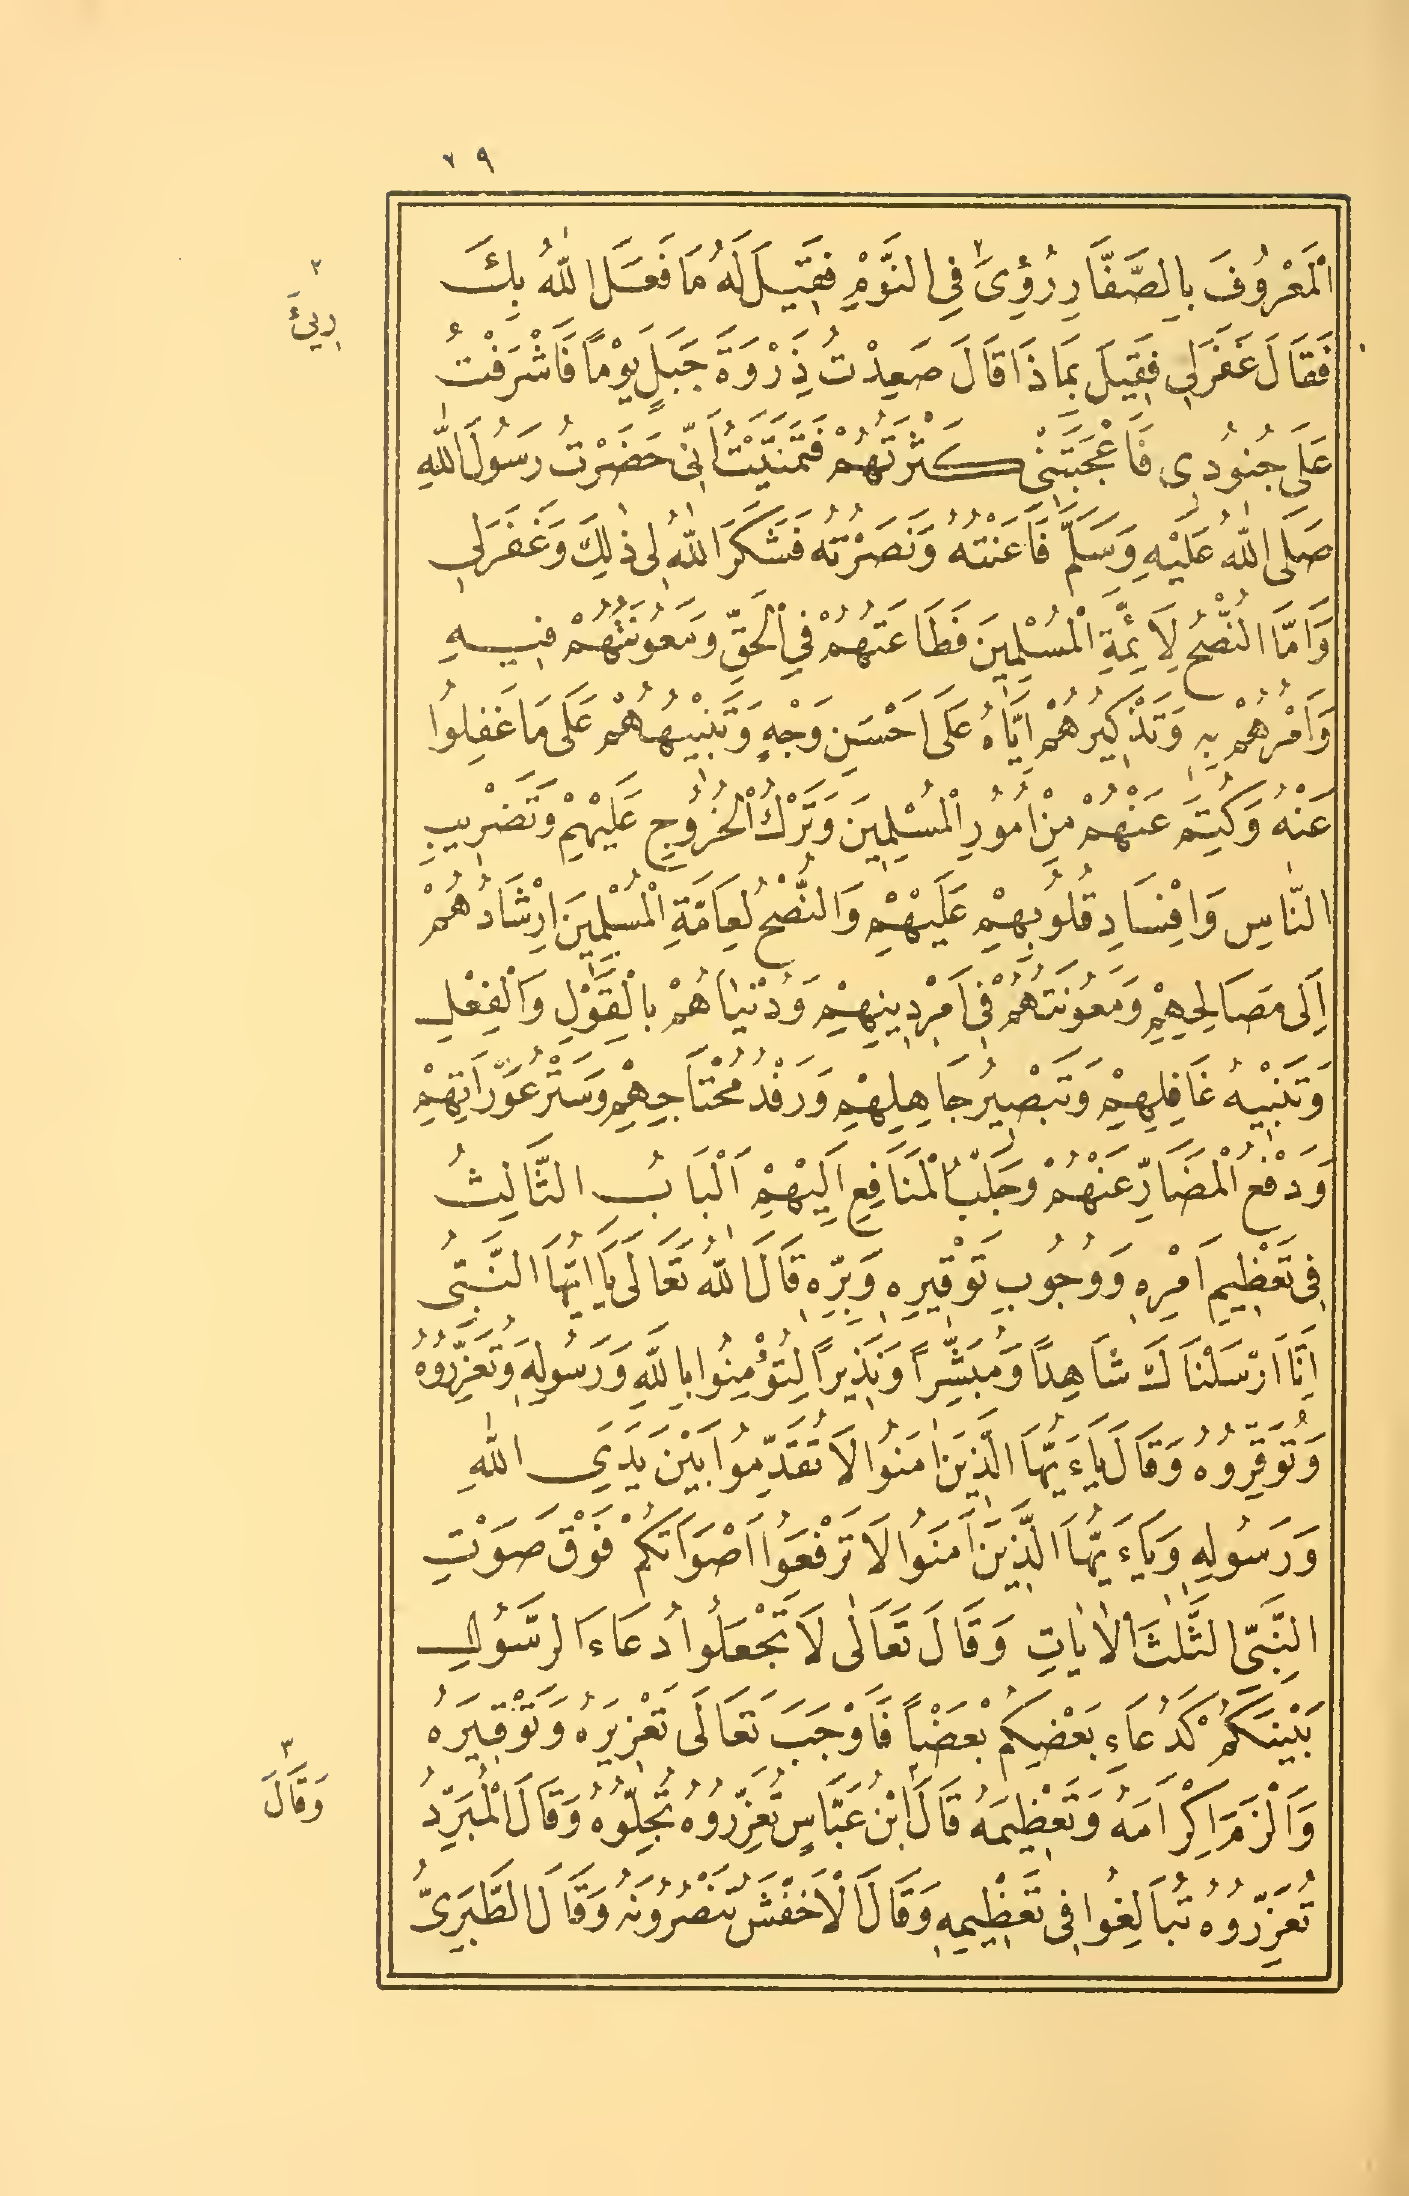 ٢٩
الْمَعْرُوفَ بِالصَّفَّارِ رُؤِىَ٢ فِى النَّوْمِ فَقِيلَ لَهُ مَا فَعَلَ اللّٰهُ بِكَ
فَقَالَ غَفَرَلِى فَقِيلَ بِمَاذَا قَالَ صَعِدْتُ ذِرْوَةَ جَبَلٍ يَوْمًا فَاَشْرَفْتُ
عَلَى جُنُودِى فَاَعْجَبَتْنِى كَثْرَتُهُمْ فَتَمَنَّيْتُ اَنِّى حَضَرْتُ رَسُولَ اللّٰهِ
صَلَى اللّٰهُ عَلَيْهِ وَسَلَّمَ فَاَعَنْتُهُ وَنَصَرْتُهُ فَشَكَرَ اللّٰهُ لِى ذٰلِكَ وَغَفَرَلِى
وَاَمَّا النُّصْحُ لِاَئِمَّةِ الْمُسْلِمِينَ فَطَاعَتُهُمْ فِى الْحَقِّ وَمَعُونَتُهُمْ فِيهِ
وَاَمْرُهُمْ بِهِ وَتَذْكِيرُهُمْ اِيَّاهُ عَلَى اَحْسَنِ وَجْهٍ وَتَنْبِيهُهُمْ عَلَى مَا غَفِلُوا
عَنْهُ وَكُتِمَ عَنْهُمْ مِنْ اُمُورِ الْمُسْلِمِينَ وَتَرْكُ الْخُرُوجِ عَلَيْهِمْ وَتَضْرِيبِ
النَّاسِ وَاِفْسَادِ قُلُوبِهِمْ عَلَيْهِمْ وَالنُّصْحُ لِعَامَّةِ الْمُسْلِمِينَ اِرْشَادُهُمْ
اِلَى مَصَالِحِهِمْ وَمَعُونَتُهُمْ فِى اَمْرِ دِينِهِمْ وَدُنْيَاهُمْ بِالْقَوْلِ وَالْفِعْلِ
وَتَنْبِيهُ غَافِلِهِمْ وَتَبْصِيرُ جَاهِلِهِمْ وَرَفْدُ مُحْتَاجِهِمْ وَسَتْرُ عَوْرَاتِهِمْ
وَدَفْعُ الْمَضَارِّ عَنْهُمْ وَجَلْبُ الْمَنَافِعِ اِلَيْهِمْ اَلْبَابُ الثَّالِثُ
فِى تَعْظِيمِ اَمْرِهِ وَوُجُوبِ تَوْقِيرِهِ وَبِرِّهِ قَالَ اللّٰهُ تَعَالَى يَا اَيُّهَا النَّبِىُّ
اِنَّا اَرْسَلْنَاكَ شَاهِدًا وَمُبَشِّرًا وَنَذِيرًا لِتُؤْمِنُوا بِاللّٰهِ وَرَسُولِهِ وَتُعَزِّرُوهُ
وَتُوَقِّرُوهُ وَقَالَ يَاءَيُّهَا الَّذِينَ اٰمَنُوا لَا تُقَدِّمُوا بَيْنَ يَدَىِ اللّٰهِ
وَرَسُولِهِ وَيَاءَيُّهَا الَّذِينَ اٰمَنُوا لَا تَرْفَعُوا اَصْوَاتَكُمْ فَوْقَ صَوْتِ
النَّبِىِّ الثَّلٰثَ الْاٰيَاتِ وَقَالَ تَعَالٰى لَا تَجْعَلُوا دُعَاءَ الرَّسُولِ
بَيْنَكُمْ كَدُعَاءِ بَعْضِكُمْ بَعْضًا فَاَوْجَبَ تَعَالَى تَعْزِيرَهُ وَتَوْقِيرَهُ
وَاَلْزَمَ اِكْرَامَهُ وَتَعْظِيمَهُ قَالَ ابْنُ عَبَّاسٍ تُعَزِّرُوهُ تُجِلُّوهُ وَقَالَ الْمُبَرِّدُ
تُعَزِّرُوهُ تُبَالِغُوا فِى تَعْظِيمِهِ وَقَالَ الْاَخْفَشُ تَنْصُرُونَهُ وَقَالَ الطَّبَرِىُّ
٢
رِيئَ
٣
وَقَالَ